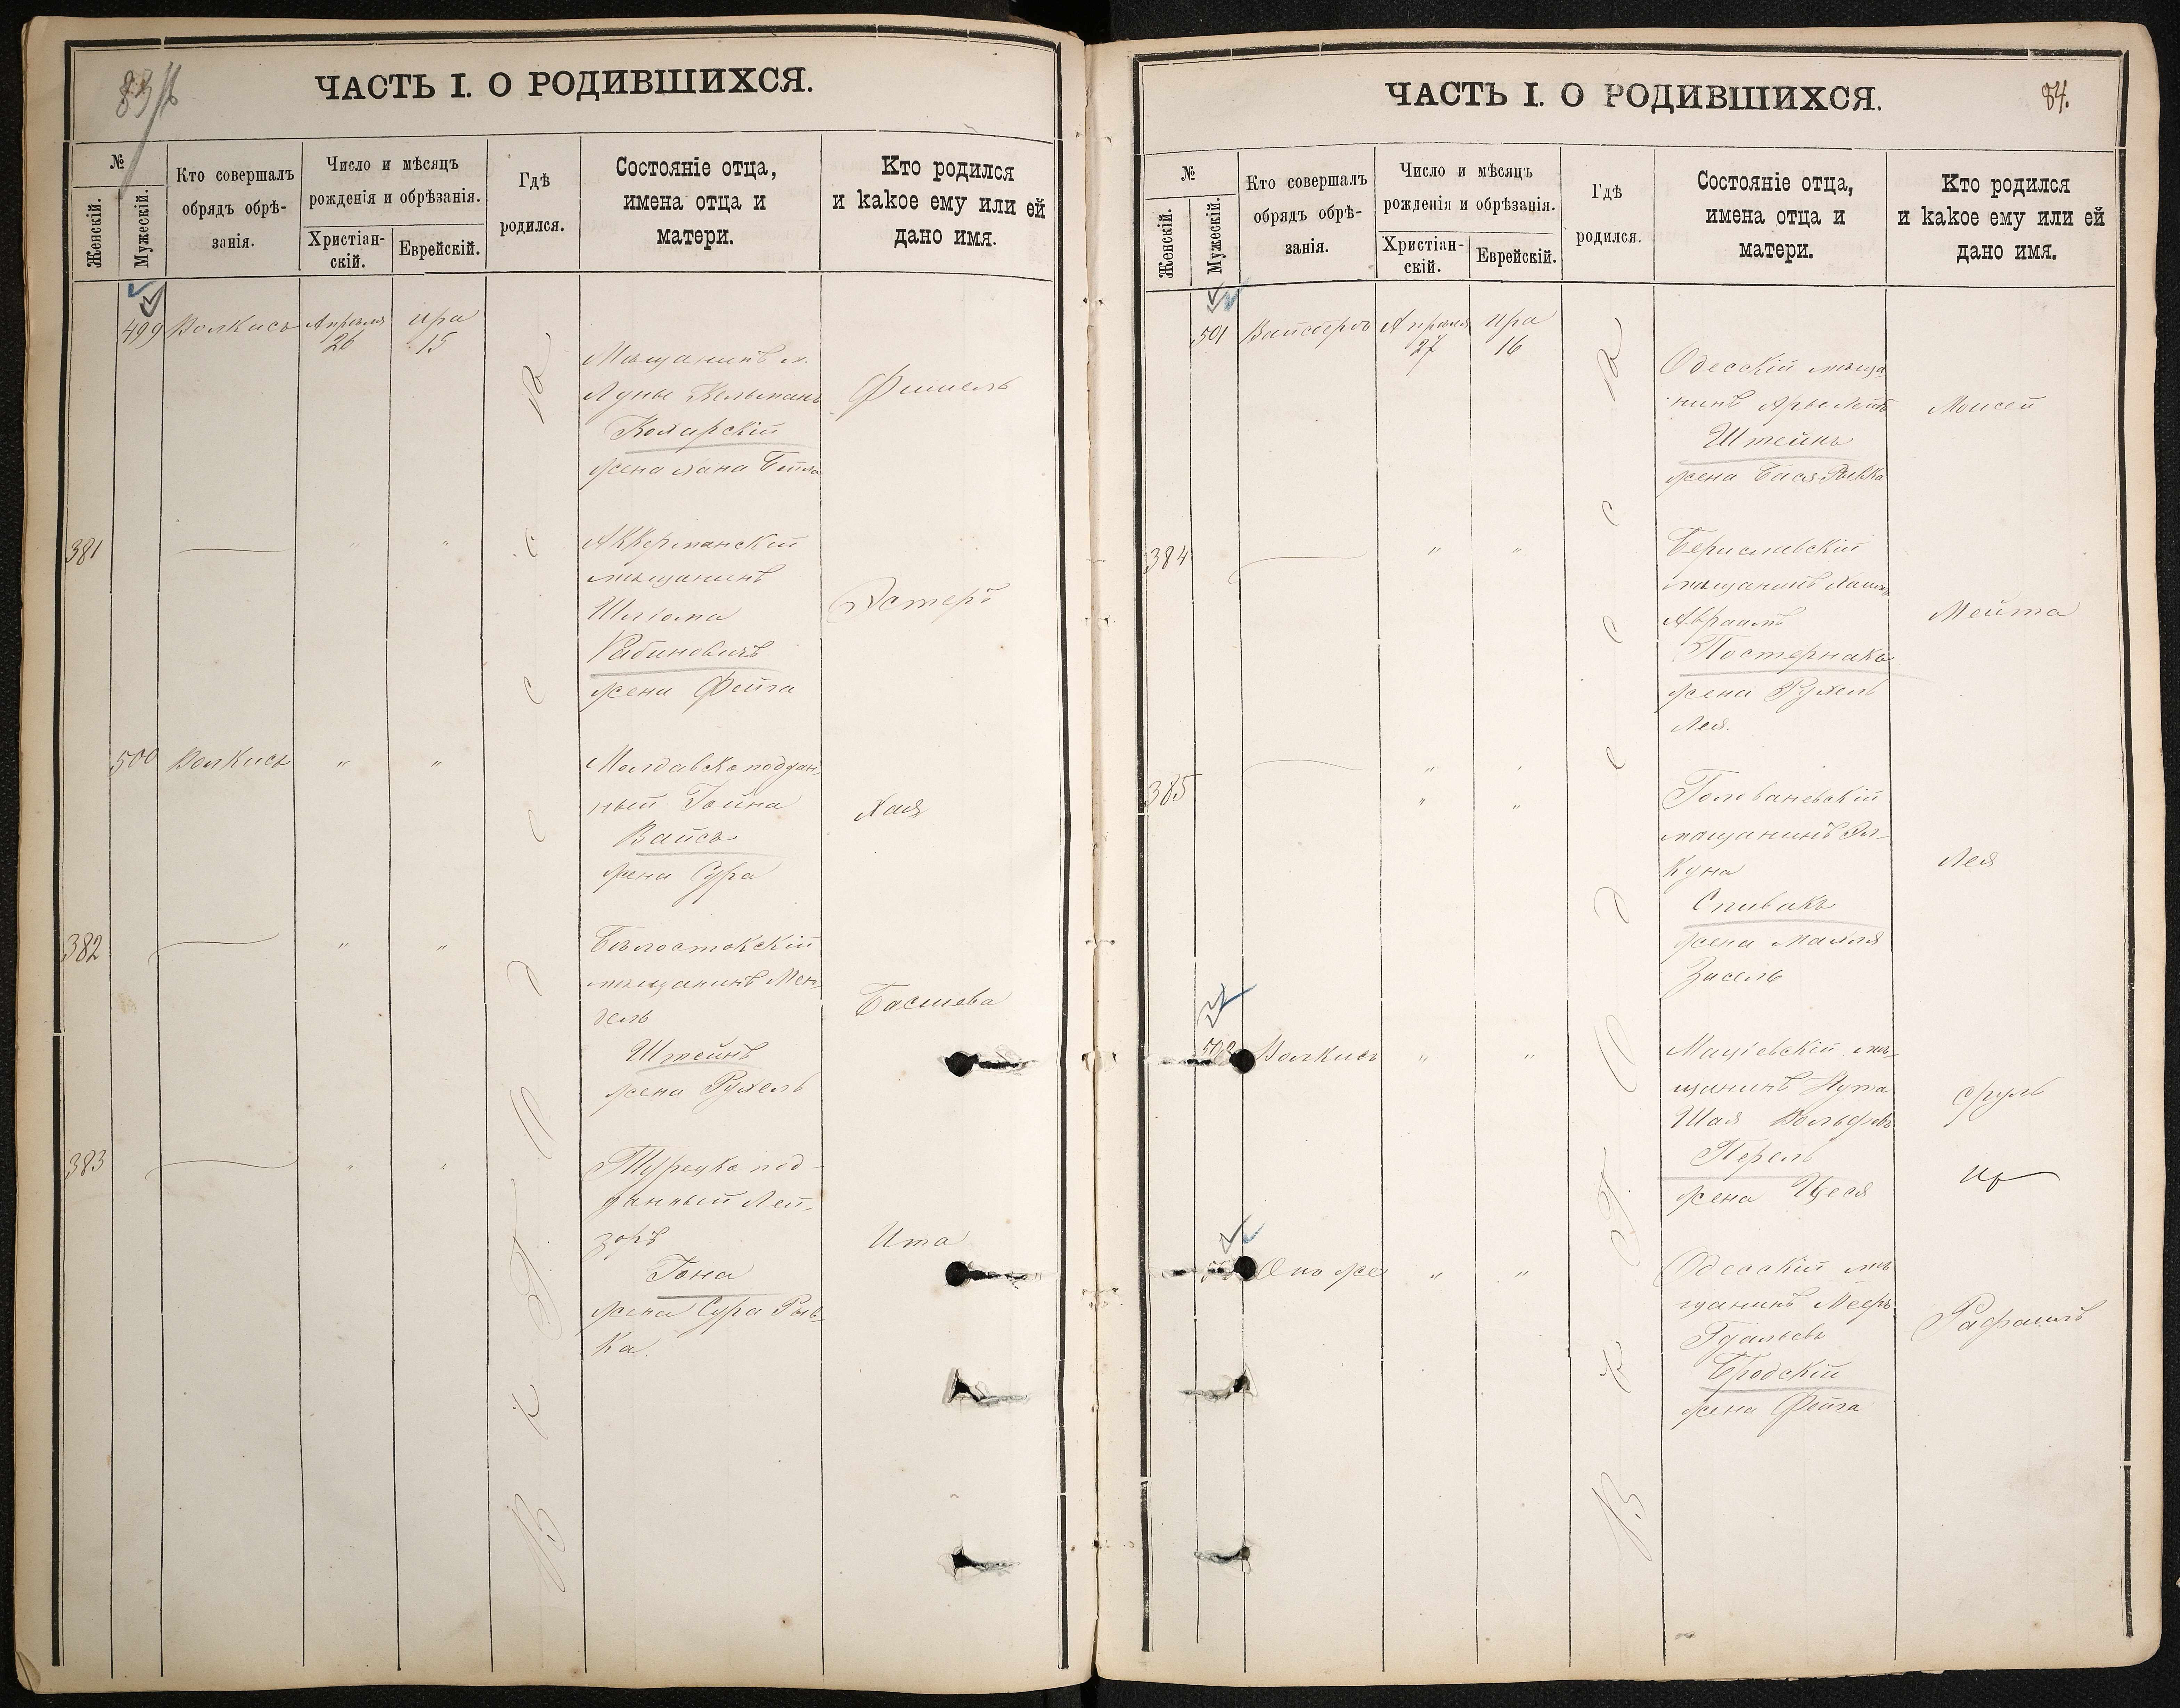 83
ЧАСТЬ I. О РОДИВШИХСЯ.
№
Женскій.
Мужескій.
Кто совершалъ
обрядъ обрѣ-
занія.
Число и мѣсяцъ
рожденія и обрѣзанія.
Христіан-
скій.
Еврейскій.
Гдѣ
родился.
Состояніе отца,
имена отца и
матери.
Кто родился
и какое ему или ей
дано имя.
499 Волкисъ Апрѣля 26 Ира 15
Мѣщанинъ м.
Дуны Кельманъ
Комарскій
жена Хана Бейла
Фишель
381 " "
Аккерманскій
мѣщанинъ
Шліома
Рабиновичъ
жена Фейга
Эстеръ
500 Волкисъ " "
Молдавскоподдан
ный Гойна
Вайсъ
жена Сура
Хая
382 " "
Бѣлостокскій
мѣщанинъ Мен-
дель
Штейнъ
жена Рухель
Басшева
383 " "
Турецко под-
данный Лей-
зоръ
Гона
жена Сура Рив-
ка.
Ита
В г. Одессѣ
ЧАСТЬ I. О РОДИВШИХСЯ.
84.
№
Женскій.
Мужескій.
Кто совершалъ
обрядъ обрѣ-
занія.
Число и мѣсяцъ
рожденія и обрѣзанія.
Христіан-
скій.
Еврейскій.
Гдѣ
родился.
Состояніе отца,
имена отца и
матери.
Кто родился
и какое ему или ей
дано имя.
501 Апрѣля 27 Ира 16
Одесскій мѣща
нинъ Арье Лейбъ
Штейнъ
жена Бася Рывка
Моисей
384 " "
Бериславскій
мѣщанинъ Хаимъ
Авраамъ
Постернакъ
жена Рухель
Лея.
Мейта
385 " "
Голованевскій
мѣщанинъ Эл-
куна
Спивакъ
жена Махля
Зисель
Лея
502 Волкисъ " "
Маціевскій мѣ-
щанинъ Нута
Шая Вольфовъ
Перель
жена Цеся
Сруль
Онъ же " "
Одесскій мѣ
щанинъ Мееръ
Гдальевъ
Бродскій
жена Фейга
Рафаилъ